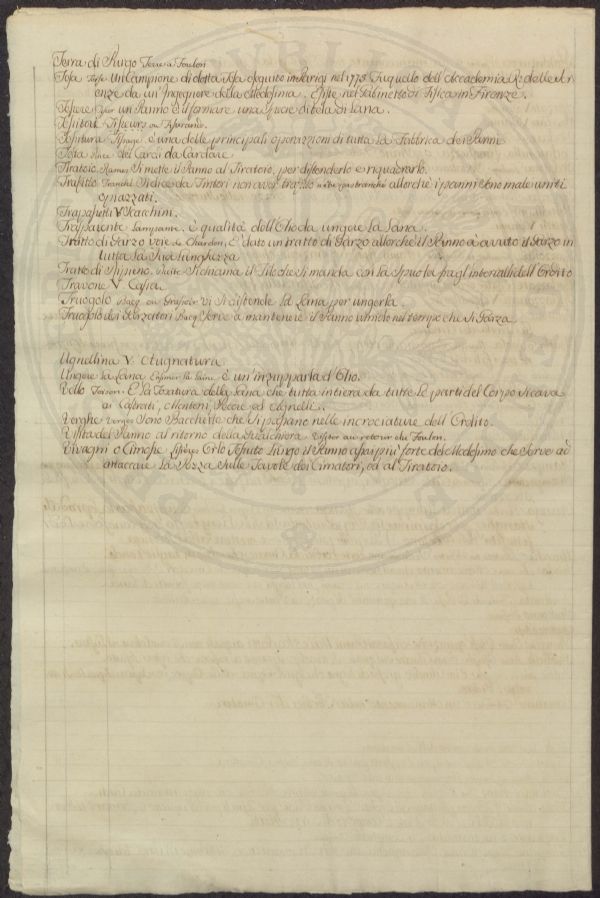 Terra di Purgo Terre a Foulon
Tesa Toise Un Campione di detta Tesa eseguito in Parigi nel 1778 su quello dell'Accademia Rl. delle Sci
enze da un'Ingegnere della Medesima. Esiste nel Gabinetto di Fisica in Firenze.
Tessere Tisser un Panno è il formare una Specie di tela di Lana.
Tessitore Tisseurs ou Tisserands.
Tessitura Tissage è una delle principali operazzioni di tutta la Fabbrica dei Panni
Testa dei Cardi da Cardare
Tiratoio Rames Si mette il Panno al Tiratoio, per distenderlo e riquadrarlo.
Trafitto Tranché Si dice da Tintori non aver trafitto n'être pas tranché allorchè i panni sono male uniti
o piazzati.
Trapassetti V. Staechini.
Trasparente Lampante. è qualità dell'Olio da ungere la Lana.
Tratto di Garzo Voie de Chardon, È dato un tratto di Garzo allorchè il Panno à avuto il Garzo in
tutta la Sua lunghezza
Tratto di Ripieno. Duite Si chiama il Filo che si manda con la Spuola fragl'intervalli dell'Ordito
Travone V. Cassa
Truogolo Bacq ou Graissoir Vi si distende la Lana per ungerla.
Truogolo dei Garzatori Bacq Serve a mantenere il Panno umido nel tempo che si Garza
Ugnellina V. Augnatura.
Ungere la Lana Ensimer la Laine è un'inzupparla d'Olio.
Vello Toison. È la Tosatura della Lana che tutta intiera da tutte le parti del Corpo si cava
ai Castrati, Montoni, Pecore ed Agnelli.
Verghe Verges Sono Bacchette che si passano nelle incrociature dell'Ordito.
Visita del Panno al ritorno della Gualchiera. Visiter au retour du Foulon.
Vivagni o Cimosse Lisières Orlo Tessuto lungo il Panno assai più forte del Medesimo che Serve ad
attaccare la Pezza Sulle Tavole dei Cimatori, ed al Tiratoio.